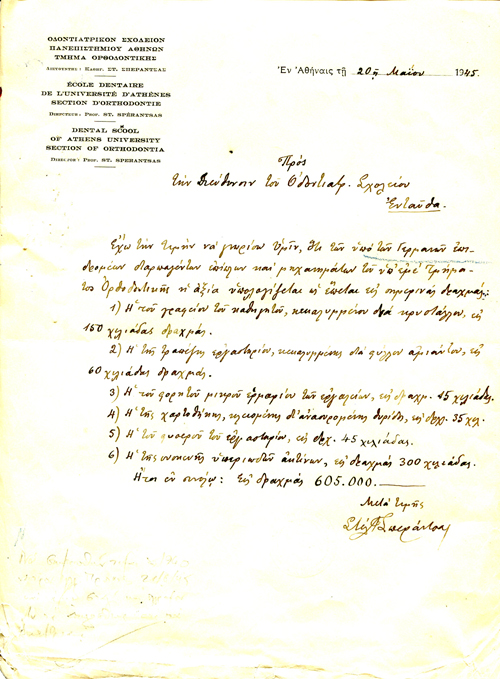 ΟΔΟΝΤΙΑΤΡΙΚΟΝ ΣΧΟΛΕΙΟΝ
ΠΑΝΕΠΙΣΤΗΜΙΟΥ ΑΘΗΝΩΝ
ΤΜΗΜΑ ΟΡΘΟΔΟΝΤΙΚΗΣ
ΔΙΕΥΘΥΝΤΗΣ: ΚΑΘΗΓ. ΣΤ. ΣΠΕΡΑΝΤΣΑΣ
ÉCOLE DENTAIRE
DE L'UNIVERSITÉ D'ATHÈNES
SECTION D'ORTHODONTIE
DIRECTEUR: PROF. ST. SPÉRANTSAS
DENTAL SCOOL
OF ATHENS UNIVERSITY
SECTION OF ORTHODONTIA
DIRECTOR: PROF. ST. SPERANTSAS
Ἐν Ἀθήναις τῇ 20ῃ Μαΐου 1945
Πρὸς
τὴν Διεύθυνσιν τοῦ Ὀδοντιατρ. Σχολείου
Ἐνταῦθα.
Ἔχω τὴν τιμὴν νὰ γνωρίσω Ὑμῖν, ὅτι τῶν ὑπὸ τῶν Γερμανῶν ἐπι-
δρομέων διαρπαγέντων ἐπίπλων καὶ μηχανημάτων τοῦ ὑπ' ἐμὲ Τμήμα-
τος Ὀρθοδοντικῆς ἡ ἀξία ὑπολογίζεται ὡς ἕπεται εἰς σημερινὰς δραχμάς:
1) Ἡ τοῦ γραφείου τοῦ καθηγητοῦ, κεκαλυμμένου διὰ κρυστάλλου, εἰς
150 χιλιάδας δραχμάς.
2) Ἡ τῆς τραπέζης ἐργαστηρίου, κεκαλυμμένης διὰ φύλλου ἀμιάντου, εἰς
60 χιλιάδας δραχμάς.
3) Ἡ τοῦ φορητοῦ μικροῦ ἑρμαρίου τῶν ἐργαλείων, εἰς δραχμ. 15 χιλιάδας.
4) Ἡ τῆς χαρτοθήκης, κλειομένης δι' ἀνασυρομένης θυρίδος, εἰς δρχ. 35 χιλ.
5) Ἡ τοῦ φυσεροῦ τοῦ ἐργαστηρίου, εἰς δρχ. 45 χιλιάδας.
6) Ἡ τῆς συσκευῆς ὑπεριωδῶν ἀκτίνων, εἰς δραχμὰς 300 χιλιάδας.
Ἤτοι ἐν συνόλῳ: εἰς δραχμὰς 605.000.
Μετὰ τιμῆς
Σπεράντσας